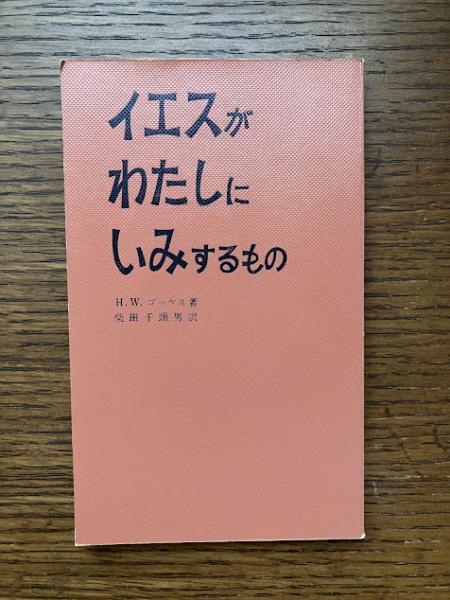 イエスが
わたしに
いみするもの
H.W.ゴッケル著
柴田千頭男訳